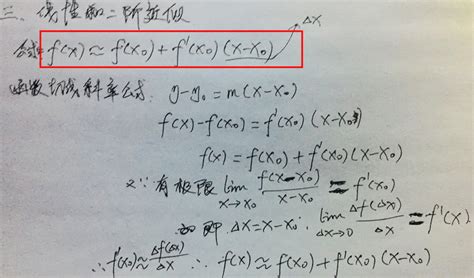 三、线性和二阶近似
Δx
公式: f(x) ≈ f(x₀) + f'(x₀) (x-x₀)
函数切线斜率公式: y-y₀ = m(x-x₀)
f(x)-f(x₀) = f'(x₀) (x-x₀)
f(x) = f(x₀) + f'(x₀)(x-x₀)
又∵有极限 lim x→x₀ f(x-x₀)/x-x₀ = f'(x₀)
即 Δx = x-x₀ ∴ lim Δx→0 Δf(Δx)/Δx = f'(x)
∴ f'(x₀) ≈ Δf(Δx)/Δx ∴ f(x) ≈ f(x₀) + f'(x₀)(x-x₀)